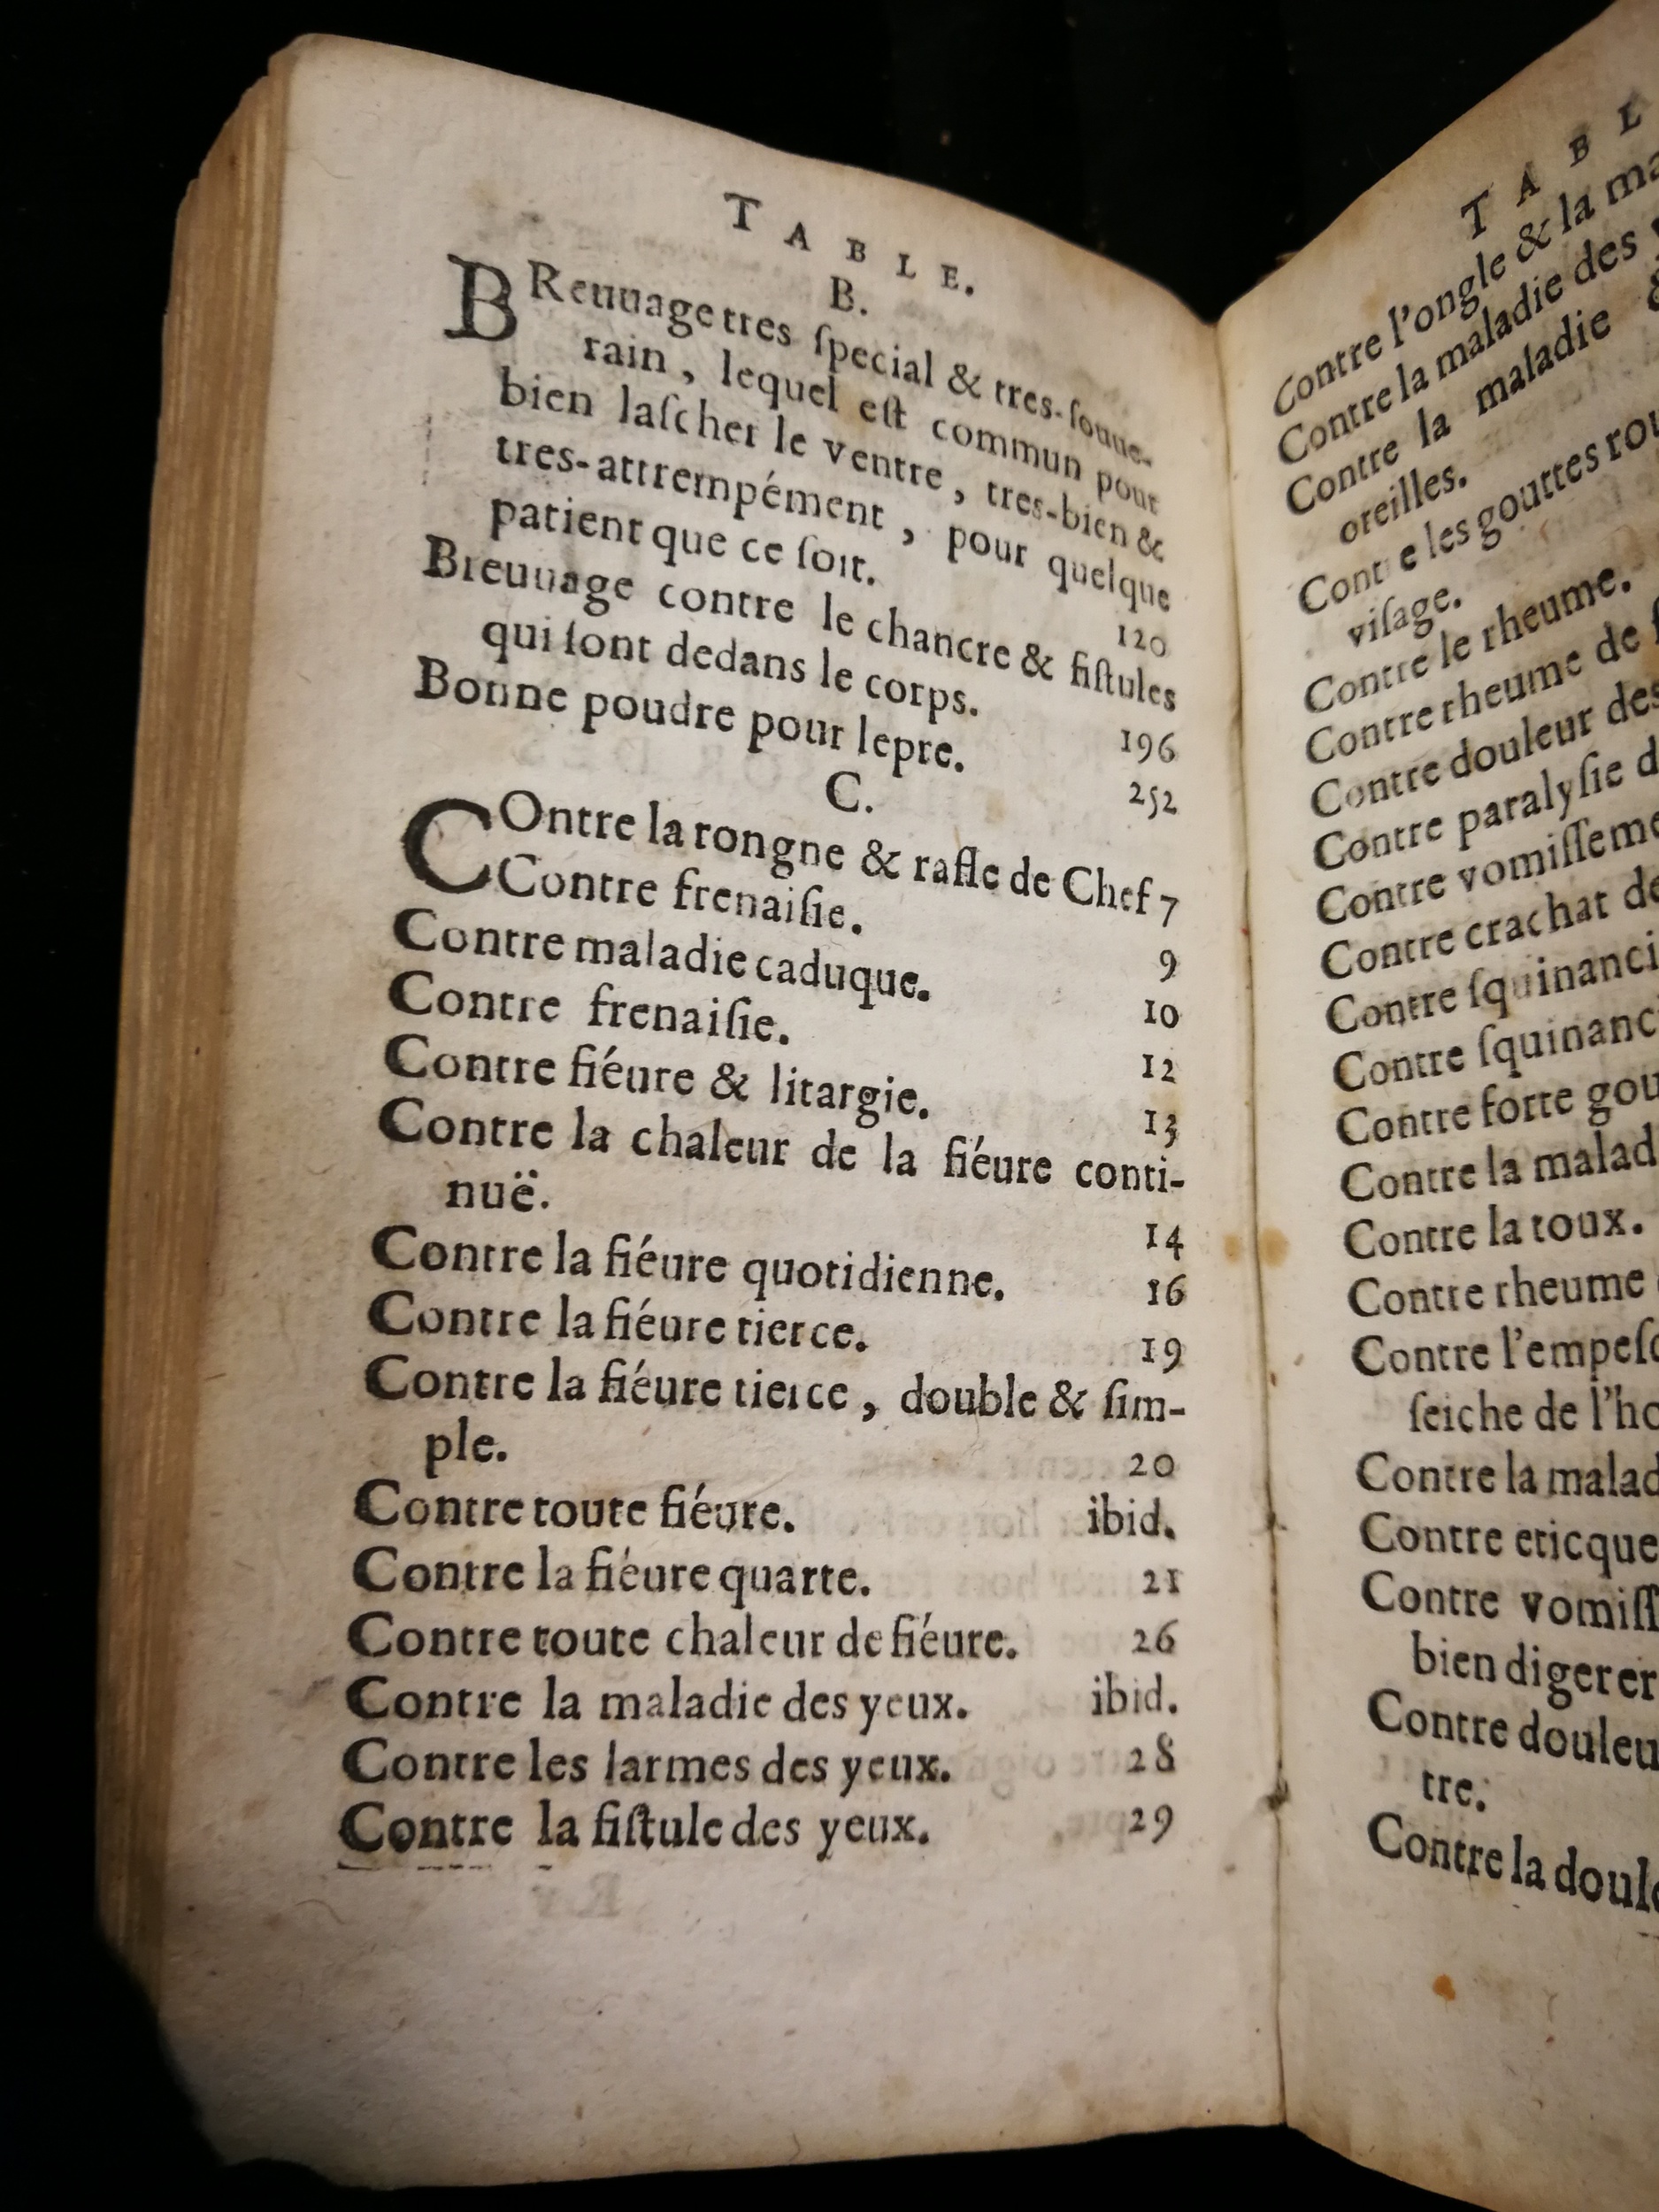 TABLE.
B.
BReuuage tres ſpecial & tres-ſouue-
rain, lequel eſt commun pour
bien laſcher le ventre, tres-bien &
tres-attrempément, pour quelque
patient que ce ſoit. 120
Breuuage contre le chancre & fiſtules
qui ſont dedans le corps. 196
Bonne poudre pour lepre. 252
C.
COntre la rongne & rafle de Chef 7
Contre frenaiſie. 9
Contre maladie caduque. 10
Contre frenaiſie. 12
Contre fiéure & litargie. 13
Contre la chaleur de la fiéure conti-
nuë. 14
Contre la fiéure quotidienne. 16
Contre la fiéure tierce. 19
Contre la fiéure tierce, double & ſim-
ple. 20
Contre toute fiéure. ibid.
Contre la fiéure quarte. 21
Contre toute chaleur de fiéure. 26
Contre la maladie des yeux. ibid.
Contre les larmes des yeux. 28
Contre la fiſtule des yeux. 29
TABL
Contre l'ongle & la ma
Contre la maladie des
Contre la maladie &
oreilles.
Contre les gouttes rou
viſage.
Contre le rheume.
Contre rheume de
Contre douleur des
Contre paralyſie d
Contre vomiſſeme
Contre crachat de
Contre ſquinanci
Contre ſquinanc
Contre forte gou
Contre la malad
Contre la toux.
Contre rheume
Contre l'empeſc
ſeiche de l'ho
Contre la malad
Contre eticque
Contre vomiſſ
bien digerer
Contre douleu
tre.
Contre la doule